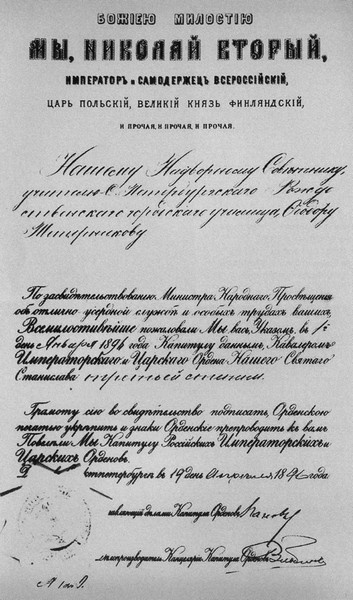 БОЖІЕЮ МИЛОСТІЮ
МЫ, НИКОЛАЙ ВТОРЫЙ,
ИМПЕРАТОРЪ и САМОДЕРЖЕЦЪ ВСЕРОССІЙСКІЙ,
ЦАРЬ ПОЛЬСКІЙ, ВЕЛИКІЙ КНЯЗЬ ФИНЛЯНДСКІЙ,
И ПРОЧАЯ, И ПРОЧАЯ, И ПРОЧАЯ.
Нашему Надворному Совѣтнику,
учителю С. Петербургскаго Рожде
ственскаго городскаго училища, Ѳедору
Тетерникову
По засвидѣтельствованію Министра Народнаго Просвѣщенія
объ отлично усердной службѣ и особыхъ трудахъ вашихъ,
Всемилостивѣйше пожаловали Мы васъ Указомъ, въ 1й
день Января 1896 года Капитулу даннымъ, Кавалеромъ
Императорскаго и Царскаго Ордена Нашего Святаго
Станислава третьей степени.
Грамоту сію во свидѣтельство подписать, Орденскою
печатью укрѣпить и знаки Орденскіе препроводить къ вамъ
Повелѣли Мы Капитулу Россійскихъ Императорскихъ и
Царскихъ Орденовъ.
въ 19 день 1896 года
дѣлами Капитула Орденовъ
Канцеляріи Капитула Орденовъ